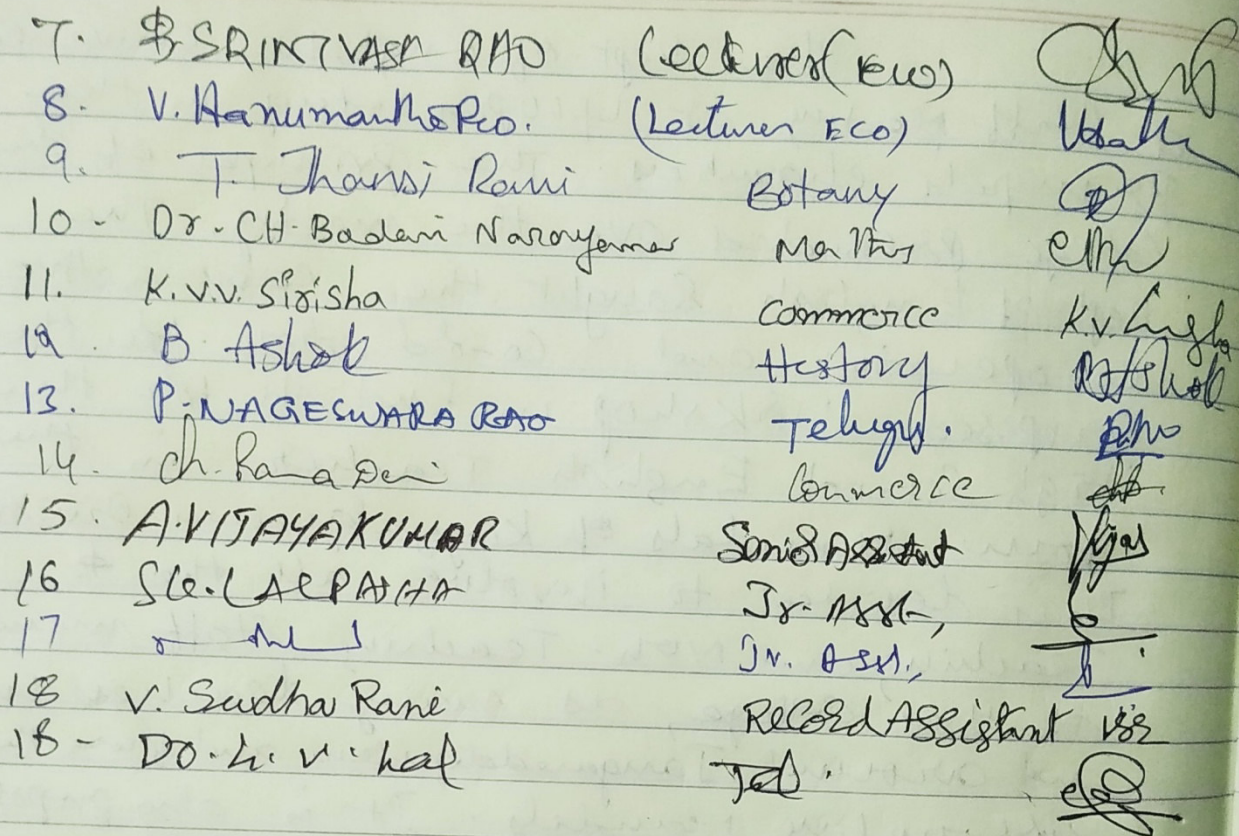 7. B SRINIVASA RAO Lecturer (ECO)
8. V. Hanumantha Rao. (Lecturer ECO)
9. T. Jhansi Rani Botany
10 - Dr. CH. Badari Narayana Maths
11. K.V.V. Sirisha Commerce K.V.
12 B Ashok History B Ashok
13. P. NAGESWARA RAO Telugu.
14. Ch. Rama Devi Commerce
15. A. VIJAYA KUMAR Senior Assistant
16 SK. LALPASHA Jr. Asst,
17 Jr. Asst.,
18 V. Sudha Rani Record Assistant VSR
18 -